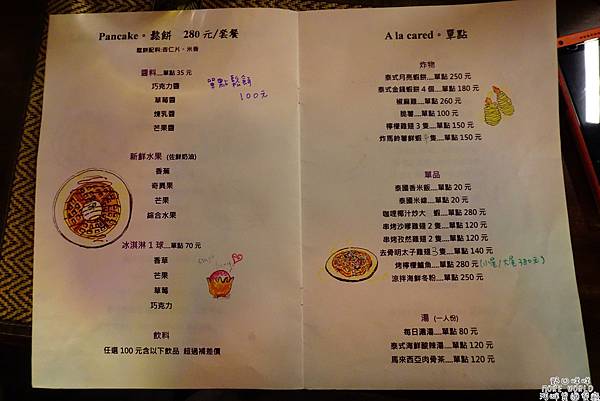 Pancake。鬆餅 280元/套餐
鬆餅配料:杏仁片、米香
醬料....單點35元
巧克力醬
草莓醬
煉乳醬
芒果醬
單點鬆餅
100元
新鮮水果 (佐鮮奶油)
香蕉
奇異果
芒果
綜合水果
冰淇淋1球....單點70元
香草
芒果
草莓
巧克力
飲料
任選100元含以下飲品 超過補差價
A la cared。單點
炸物
泰式月亮蝦餅....單點250元
泰式金錢蝦餅4個....單點180元
椒麻雞....單點260元
脆薯....單點100元
檸檬雞翅3隻....單點150元
炸馬鈴薯鮮蝦5隻....單點150元
單品
泰國香米飯....單點20元
泰國米線....單點20元
咖哩椰汁炒大 蝦....單點280元
串烤沙嗲雞翅2隻....單點120元
串烤孜然雞翅2隻....單點120元
去骨明太子雞翅3隻....單點140元
烤檸檬鱸魚....單點280元(小尾/大尾380元)
涼拌海鮮冬粉....單點250元
湯 (一人份)
每日濃湯....單點80元
泰式海鮮酸辣湯....單點120元
馬來西亞肉骨茶....單點120元
MORE WORLD